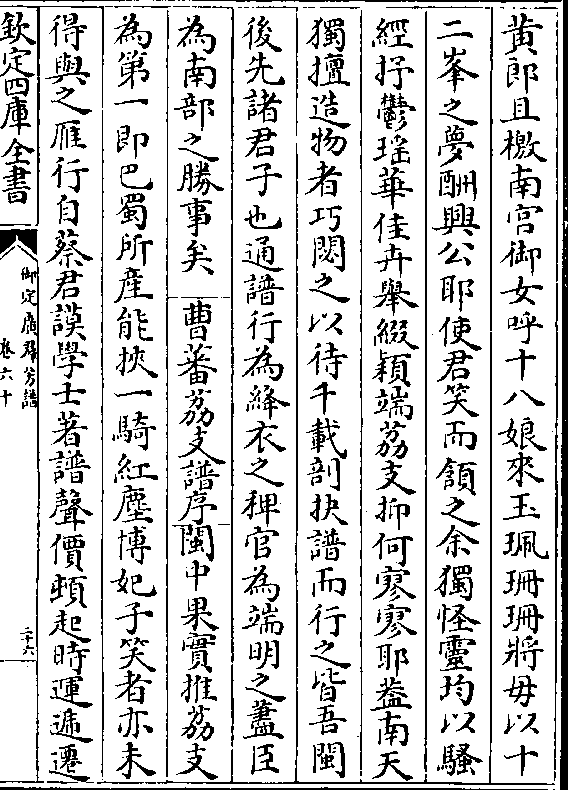 黄郎且檄南宫御女呼十八娘來玉珮珊珊將毋以十
二峯之夢酬興公耶使君笑而頷之余獨怪靈均以騷
經抒鬱瑶華佳卉舉綴穎端荔支抑何寥寥耶葢南天
獨擅造物者巧閟之以待千載剖抉譜而行之皆吾閩
後先諸君子也通譜行為絳衣之稗官為端明之藎臣
為南部之勝事矣 曹蕃荔支譜序閩中果實推荔支
為第一即巴蜀所産能挾一騎紅塵博妃子笑者亦未
得與之雁行自蔡君謨學士著譜聲價頓起時運遞遷
欽定四庫全書
御定廣群芳譜
卷六十
二十六